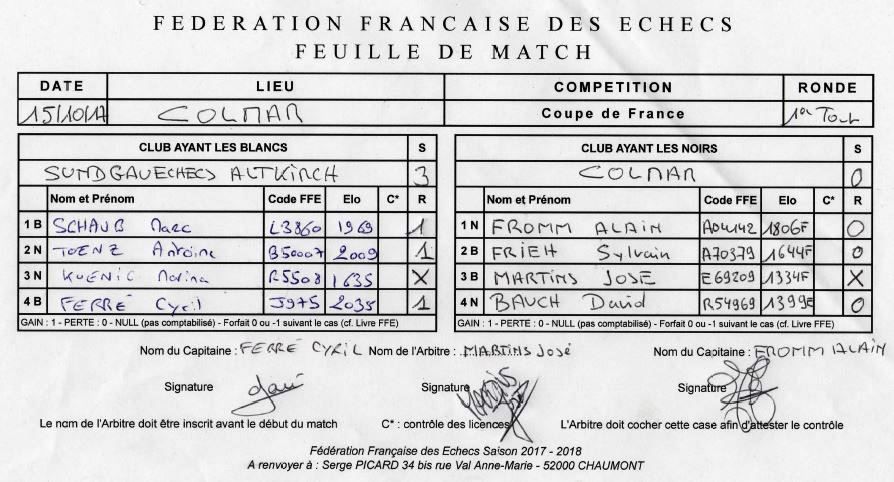 FEDERATION FRANCAISE DES ECHECS
FEUILLE DE MATCH
DATE LIEU COMPETITION RONDE
15/10/17 COLMAR Coupe de France 1er Tour
CLUB AYANT LES BLANCS S CLUB AYANT LES NOIRS S
SUNDGAUECHECS ALTKIRCH 3 COLMAR 0
Nom et Prénom Code FFE Elo C* R Nom et Prénom Code FFE Elo C* R
1 B SCHAUB Marc L3860 1969 1 1 N FROMM ALAIN A04142 1806F 0
2 N TOENZ Antoine B50007 2009 1 2 B FRIEH Sylvain A70379 1644F 0
3 N KUENIC Marina R5508 1635 X 3 B MARTINS JOSE E69209 1334F X
4 B FERRÉ Cyril J975 2035 1 4 N BAUCH David R54969 1399F 0
GAIN : 1 - PERTE : 0 - NULL (pas comptabilisé) - Forfait 0 ou -1 suivant le cas (cf. Livre FFE) GAIN : 1 - PERTE : 0 - NULL (pas comptabilisé) - Forfait 0 ou -1 suivant le cas (cf. Livre FFE)
Nom du Capitaine : FERRÉ CYRIL Nom de l'Arbitre : MARTINS José Nom du Capitaine : FROMM ALAIN
Signature Signature Signature
Le nom de l'Arbitre doit être inscrit avant le début du match C* : contrôle des licences L'Arbitre doit cocher cette case afin d'attester le contrôle
Fédération Française des Echecs Saison 2017 - 2018
A renvoyer à : Serge PICARD 34 bis rue Val Anne-Marie - 52000 CHAUMONT